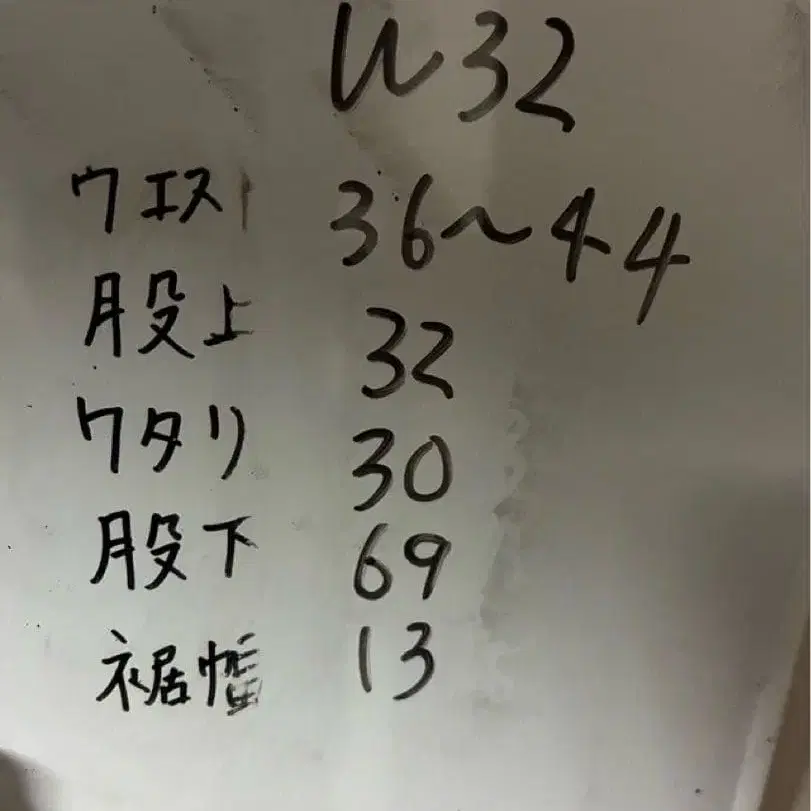 W32
ウエスト 36〜44
股上 32
ワタリ 30
股下 69
裾幅 13